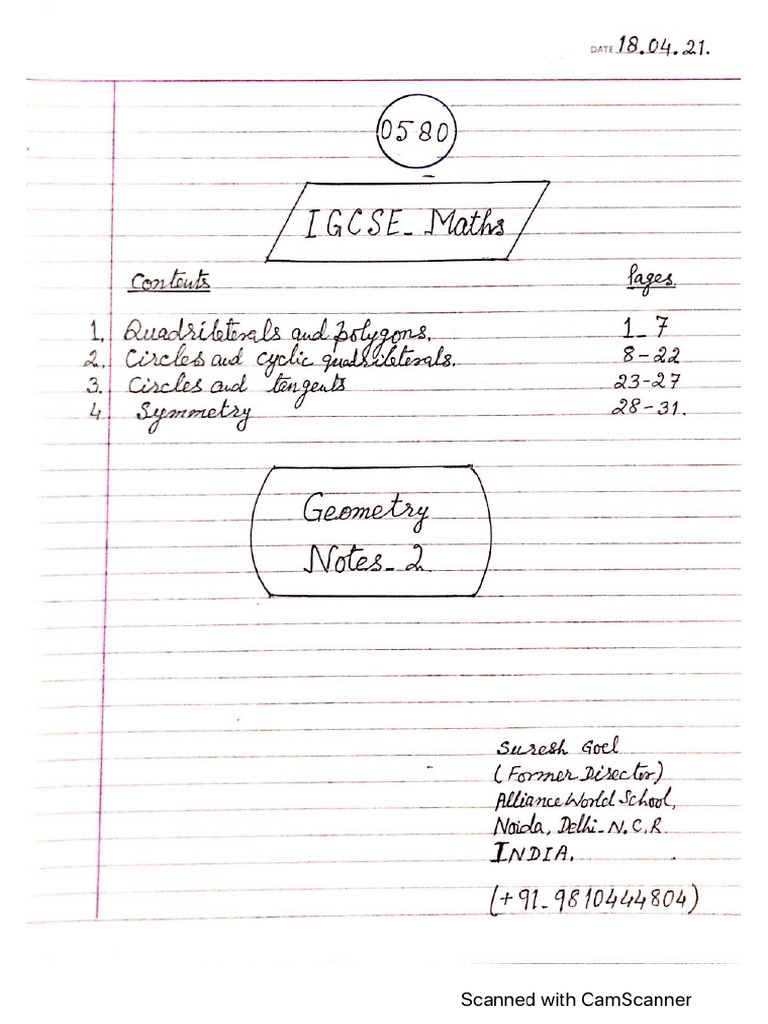 DATE 18.04.21.
0580
IGCSE_ Maths
Contents Pages
1. Quadrilaterals and polygons. 1_7
2. Circles and cyclic quadrilaterals. 8-22
3. Circles and tangents 23-27
4. Symmetry 28-31.
Geometry
Notes_2
Suresh Goel
(Former Director)
Alliance World School,
Noida, Delhi_N.C.R.
INDIA.
(+91_9810444804)
Scanned with CamScanner